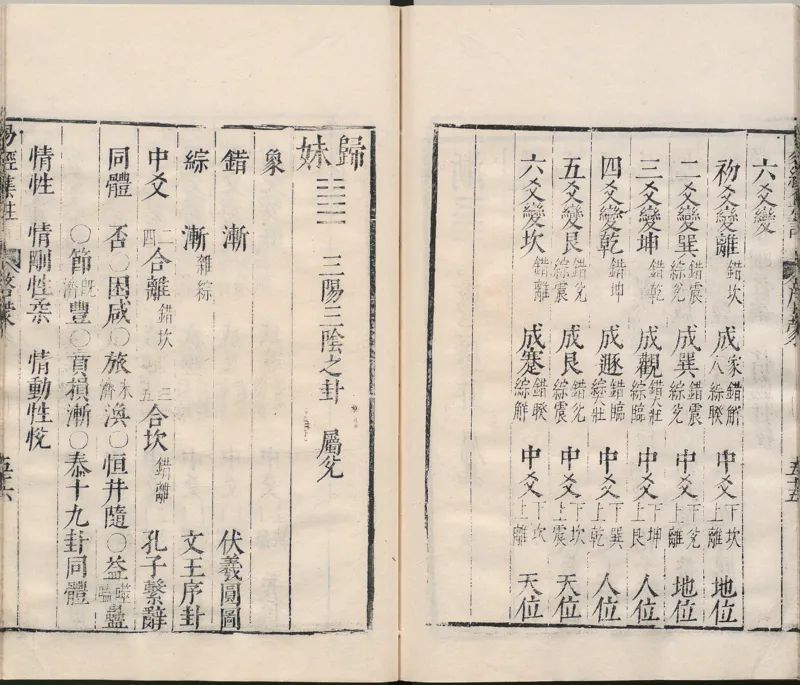 六爻變
初爻變離 錯坎 成家人 錯解 綜睽 中爻 下坎 上離 地位
二爻變巽 錯震 綜兌 成巽 錯震 綜兌 中爻 下兌 上離 地位
三爻變坤 錯乾 成觀 錯大壯 綜臨 中爻 下坤 上艮 人位
四爻變乾 錯坤 成遯 錯臨 綜大壯 中爻 下巽 上乾 人位
五爻變艮 錯兌 綜震 成艮 錯兌 綜震 中爻 下坎 上震 天位
六爻變坎 錯離 成蹇 錯睽 綜解 中爻 下坎 上離 天位
歸妹 三陽三陰之卦 屬兌
象
錯 漸 伏羲圓圖
綜 漸 雜綜 文王序卦
中爻 二四合離 錯坎 三五合坎 錯離 孔子繫辭
同體 否○困咸○旅未濟渙○恒井隨○益噬嗑蠱
○節既濟豐○賁損漸○泰十九卦同體
情性 情剛性柔 情動性悅
易經集註 五十六